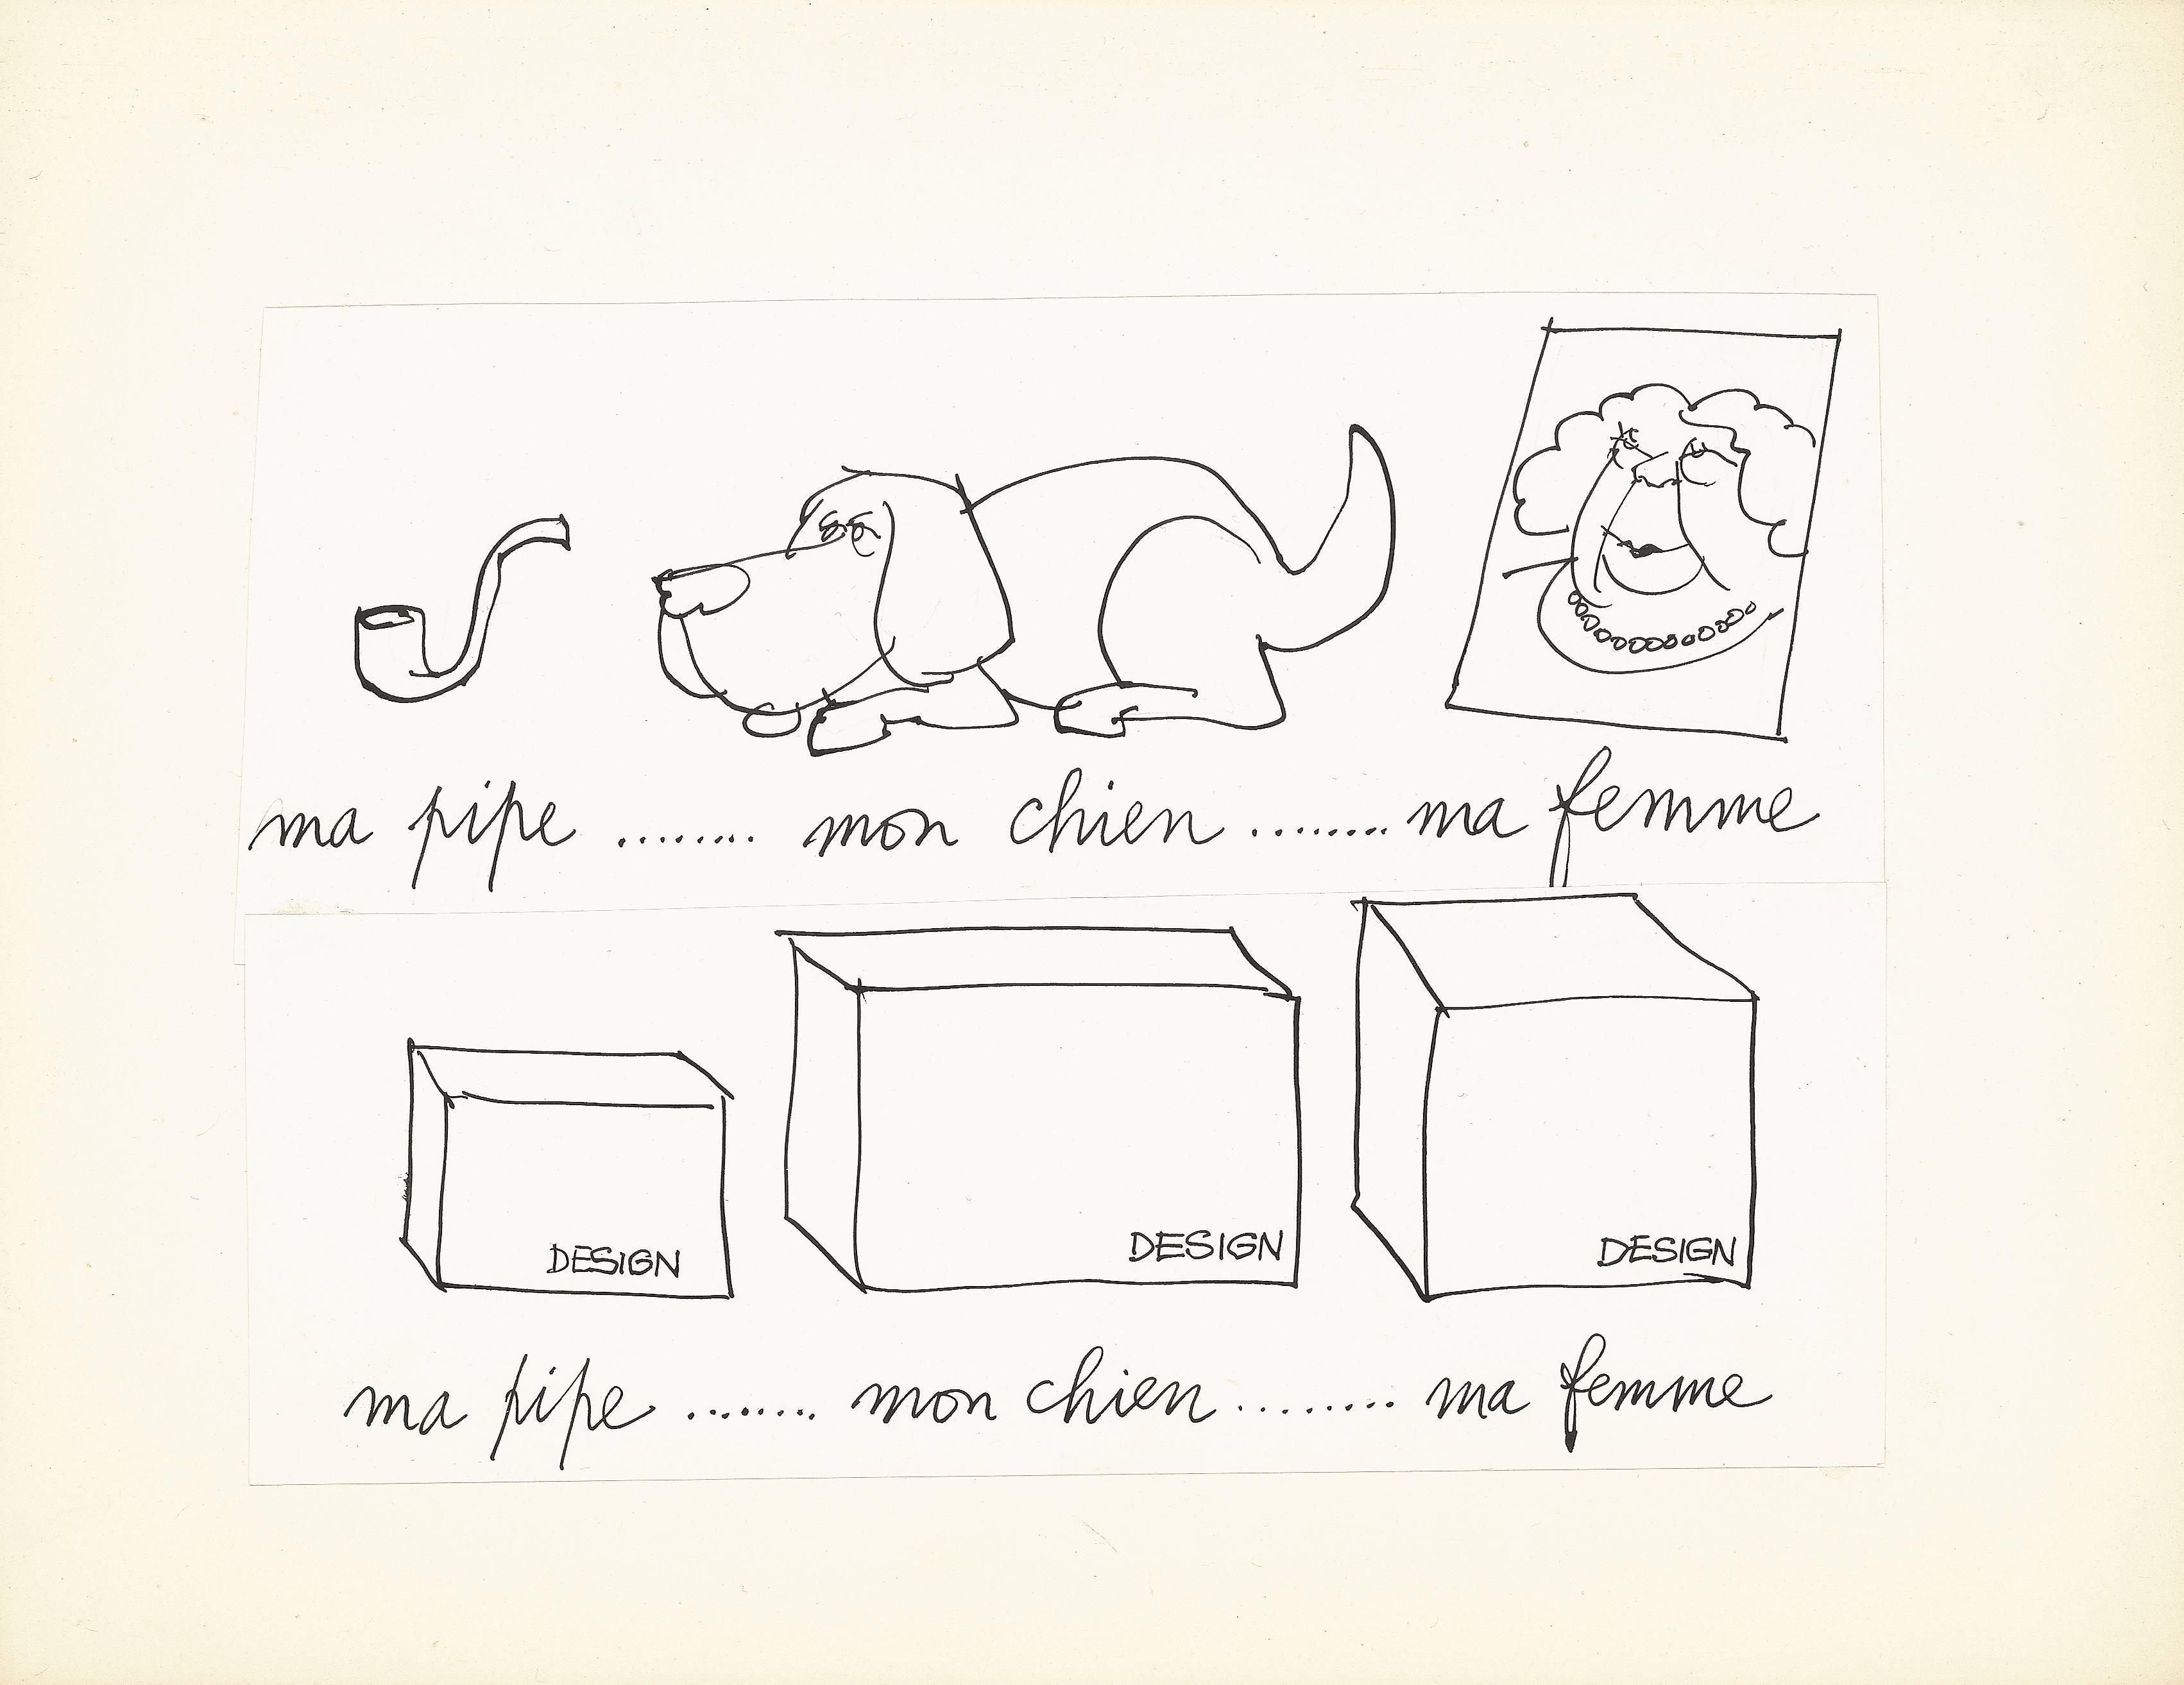 ma pipe ........ mon chien ........ ma femme
DESIGN DESIGN DESIGN
ma pipe ....... mon chien ........ ma femme